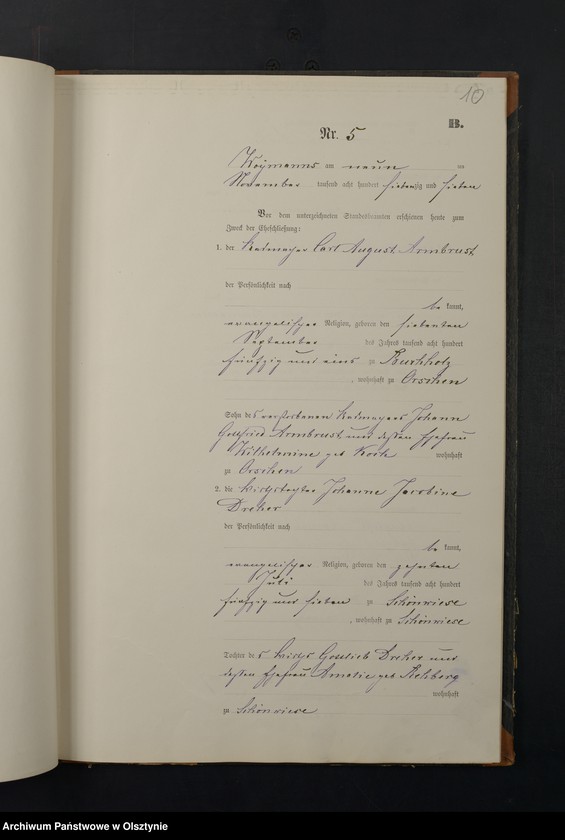 10
B.
Nr. 5
am neun
November tausend acht hundert siebenzig und sieben
Vor dem unterzeichneten Standesbeamten erschienen heute zum
Zweck der Eheschließung:
1. der Carl August Armbrust
der Persönlichkeit nach
be kannt,
evangelischer Religion, geboren den siebenten
September des Jahres tausend acht hundert
fünfzig und eins zu Buchholz
, wohnhaft zu Orschen
Sohn des verstorbenen Johann
Gottfried Armbrust und dessen Ehefrau
Wilhelmine geb Koch wohnhaft
zu Orschen
2. die Johanne Jacobine
Dreher
der Persönlichkeit nach
be kannt,
evangelischer Religion, geboren den zehnten
Juli des Jahres tausend acht hundert
fünfzig und sieben zu Schönwiese
, wohnhaft zu Schönwiese
Tochter des Wirths Gottlieb Dreher und
dessen Ehefrau Amalie geb Rehberg
wohnhaft
zu Schönwiese
Archiwum Państwowe w Olsztynie